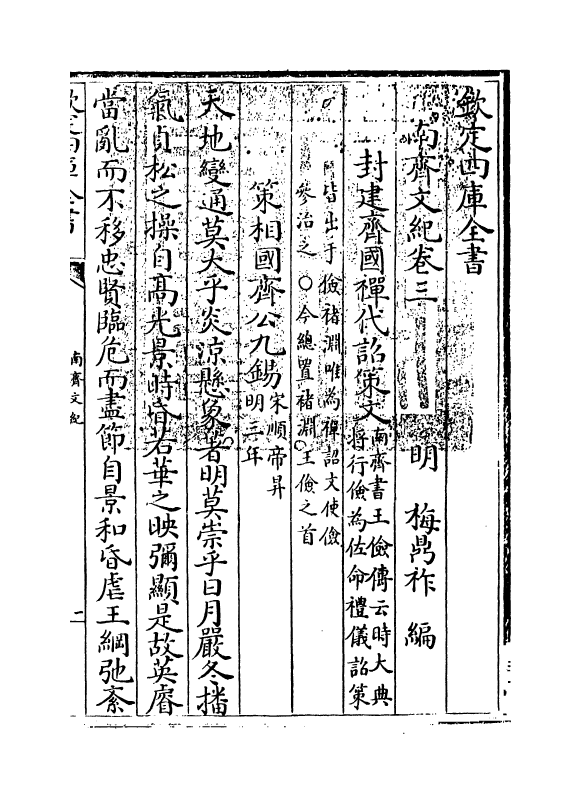 欽定四庫全書
南齊文紀卷三
明 梅鼎祚 編
封建齊國禪代詔策文南齊書王儉傳云時大典
將行儉為佐命禮儀詔策
皆出于儉褚淵唯為禪詔文使儉
參治之 ○今總置褚淵王儉之首
策相國齊公九錫宋順帝昇
明三年
天地變通莫大乎炎涼懸象著明莫崇乎日月嚴冬播
氣貞松之操自高光景時昏若華之映彌顯是故英睿
當亂而不移忠賢臨危而盡節自景和昏虐王綱弛紊
南齊文紀